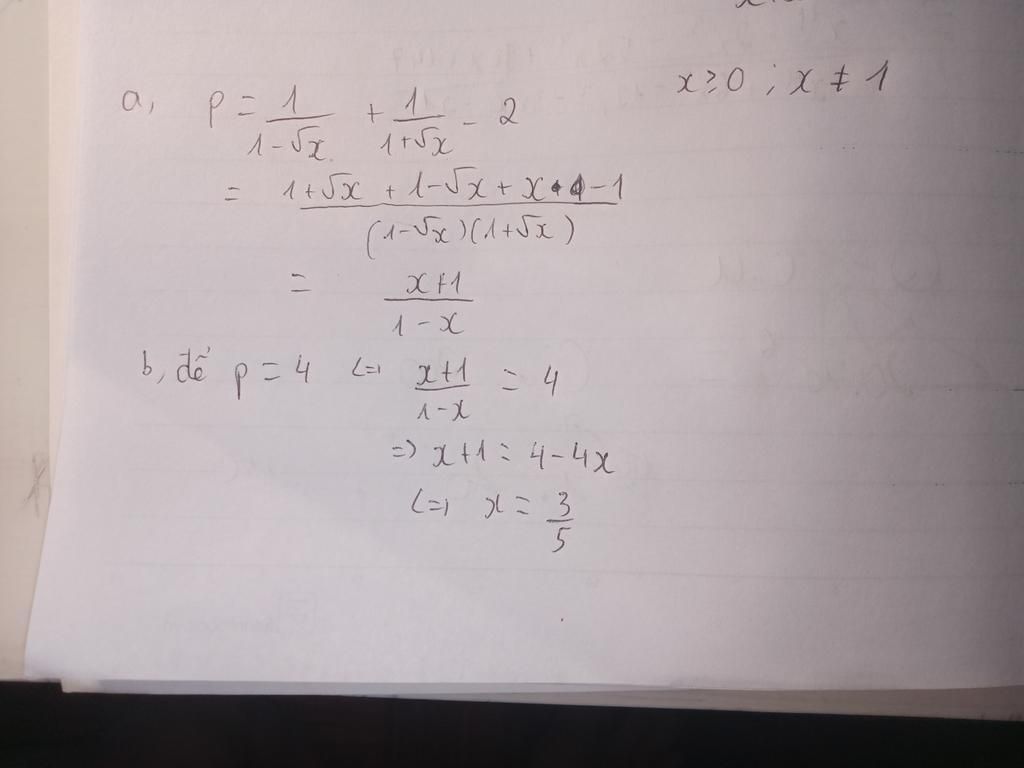 a, P = \frac{1}{1-\sqrt{x}} + \frac{1}{1+\sqrt{x}} - 2 x ≥ 0 ; x ≠ 1
= \frac{1+\sqrt{x} + 1-\sqrt{x} + x - 1}{(1-\sqrt{x})(1+\sqrt{x})}
= \frac{x+1}{1-x}
b, để p = 4 <=> \frac{x+1}{1-x} = 4
=> x+1 = 4-4x
<=> x = \frac{3}{5}